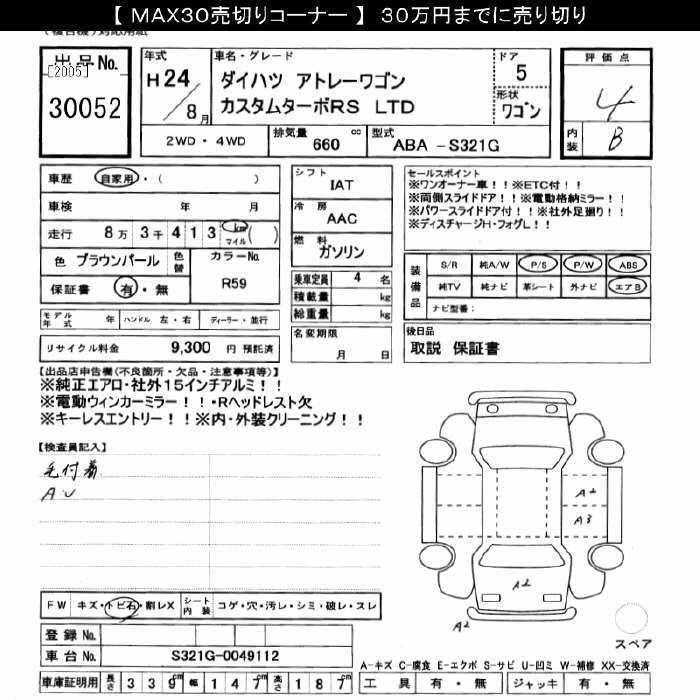 【 MAX30売切りコーナー 】 30万円までに売り切り
出品No.
[2005]
30052
年式
H24
8月
車名・グレード
ダイハツ アトレーワゴン
カスタムターボRS LTD
ドア
5
形状
ワゴン
評価点
4
内装
B
2WD・4WD
排気量
660 cc
型式
ABA -S321G
車歴 自家用・( )
車検 年 月
走行 8万 3千 4 1 3 km マイル ( )
色 ブラウンパール 色替
カラーNo.
R59
保証書 有・無
モデル年式 年 ハンドル 左・右 ディーラー・並行
リサイクル料金 9,300 円 預託済
シフト
IAT
冷房
AAC
燃料
ガソリン
乗車定員 4 名
積載量 kg
総重量 kg
名変期限
月 日
セールスポイント
※ワンオーナー車!!※ETC付!!
※両側スライドドア!!※電動格納ミラー!!
※パワースライドドア付!!※社外足廻り!!
※ディスチャージ・フォグL!!
装備品
S/R 純A/W P/S P/W ABS
純TV 純ナビ 革シート 外ナビ エアB
ナビ型番:
後日品
取説 保証書
【出品店申告欄(不良箇所・欠品・注意事項等)】
※純正エアロ・社外15インチアルミ!!
※電動ウィンカーミラー!!・Rヘッドレスト欠
※キーレスエントリー!!※内・外装クリーニング!!
【検査員記入】
毛付着
AU
A2
A3
A2
A2
スペア
FW キズ・トビ石・割レX
シート内装 コゲ・穴・汚レ・シミ・破レ・スレ
登録No.
車台No. S321G-0049112
A-キズ C-腐食 E-エクボ S-サビ U-凹ミ W-補修 XX-交換済
車庫証明用 長さ 339cm 幅 147cm 高さ 187cm
工具 有・無 ジャッキ 有・無